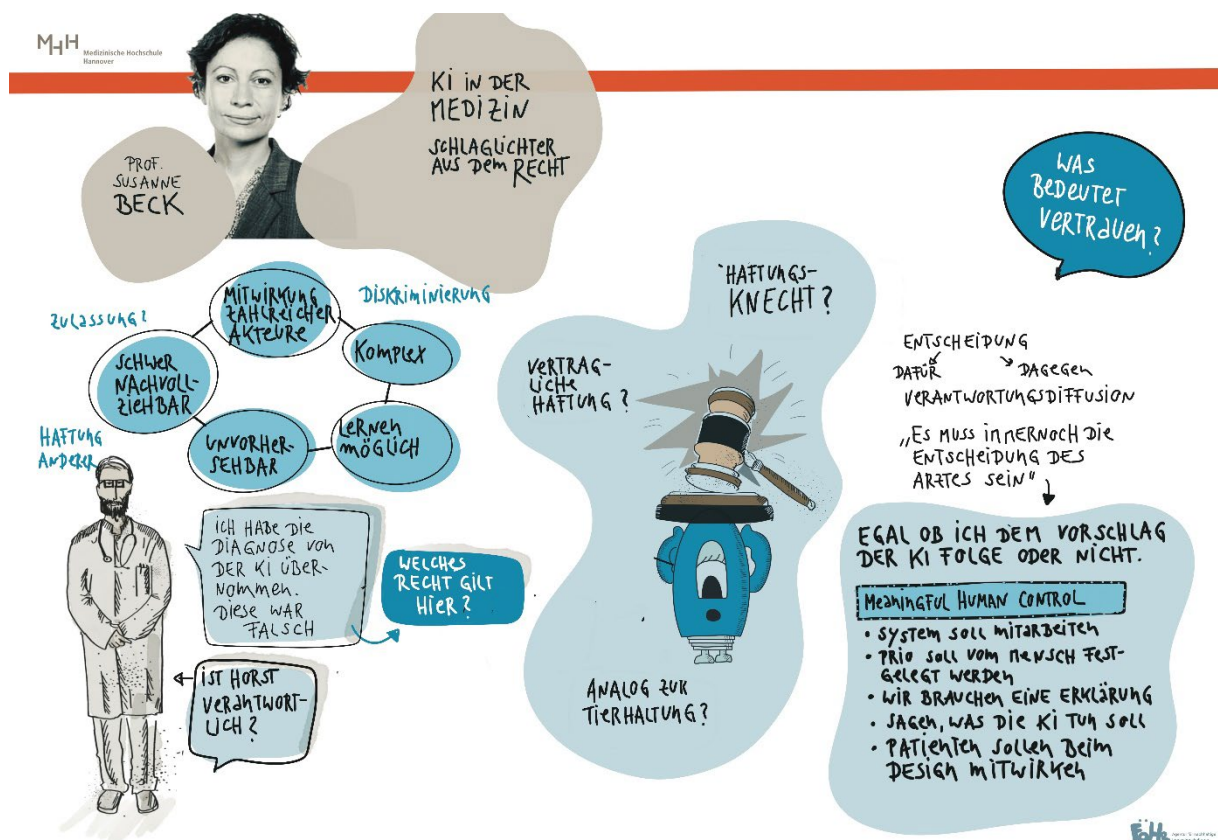 MHH
Medizinische Hochschule
Hannover
PROF.
SUSANNE
BECK
KI IN DER
MEDIZIN
SCHLAGLICHTER
AUS DEM RECHT
WAS
BEDEUTET
VERTRAUEN?
ZULASSUNG?
MITWIRKUNG
ZAHLREICHER
AKTEURE
DISKRIMINIERUNG
KOMPLEX
SCHWER
NACHVOLL-
ZIEHBAR
UNVORHER-
SEHBAR
LERNEN
MÖGLICH
HAFTUNG
ANDERER
ICH HABE DIE
DIAGNOSE VON
DER KI ÜBER-
NOMMEN.
DIESE WAR
FALSCH
WELCHES
RECHT GILT
HIER?
IST HORST
VERANTWORT-
LICH?
HAFTUNGS-
KNECHT?
VERTRAG-
LICHE
HAFTUNG?
ANALOG ZUR
TIERHALTUNG?
ENTSCHEIDUNG
DAFÜR DAGEGEN
VERANTWORTUNGSDIFFUSION
„ES MUSS IMMERNOCH DIE
ENTSCHEIDUNG DES
ARZTES SEIN“
EGAL OB ICH DEM VORSCHLAG
DER KI FOLGE ODER NICHT.
MEANINGFUL HUMAN CONTROL
• SYSTEM SOLL MITARBEITEN
• PRIO SOLL VOM MENSCH FEST-
GELEGT WERDEN
• WIR BRAUCHEN EINE ERKLÄRUNG
• SAGEN, WAS DIE KI TUN SOLL
• PATIENTEN SOLLEN BEIM
DESIGN MITWIRKEN